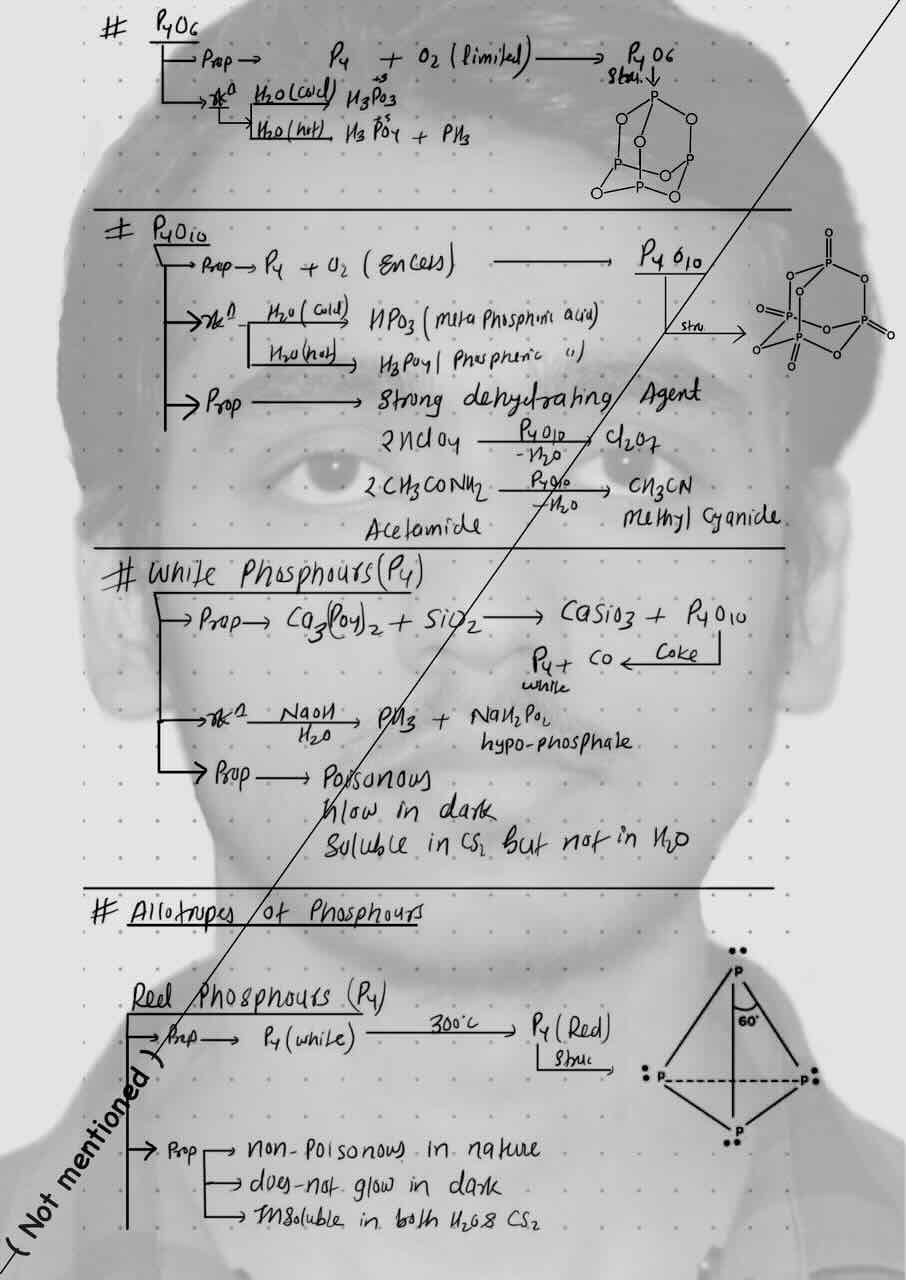 # P4O6
Prep → P4 + O2 (limited) → P4O6
Stru.
Rxn H2O (cold) H3PO3 +3
H2O (hot) H3PO4 +5 + PH3
P
O O
O
P P
O
O P O
# P4O10
Prep → P4 + O2 (Excess) → P4O10
Rxn H2O (cold) → HPO3 (meta phosphoric acid)
H2O (hot) → H3PO4 ( Phospheric '')
Stru.
O
P
O O
O
O P O P O
P
O O
O
Prop → Strong dehydrating Agent
2HClO4 P4O10 -H2O → Cl2O7
2CH3CONH2 P4O10 -H2O → CH3CN
Acetamide Methyl Cyanide
# White Phosphours (P4)
Prep → Ca3(PO4)2 + SiO2 → CaSiO3 + P4O10
P4 + CO ← Coke
white
Rxn NaOH H2O → PH3 + NaH2PO2
hypo-phosphate
Prop → Poisonous
Glow in dark
Soluble in CS2 but not in H2O
# Allotropes of Phosphours
Red Phosphours (P4)
Prep → P4 (white) 300°C → P4 (Red)
Struc
P
60°
P P
P
Prop → non-Poisonous in nature
→ does-not glow in dark
→ Insoluble in both H2O & CS2
( Not mentioned )